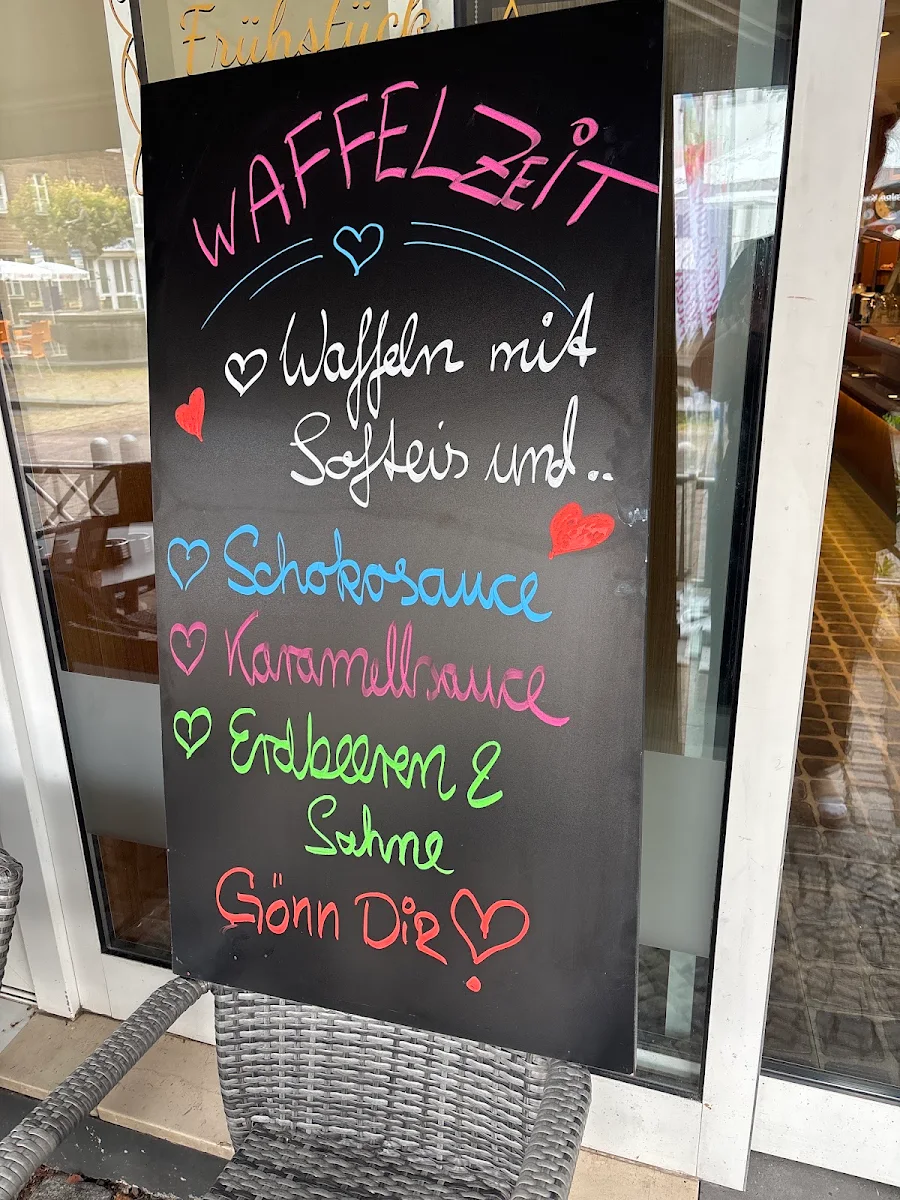 Frühstück
WAFFELZEIT
Waffeln mit
Softeis und..
Schokosauce
Karamellsauce
Erdbeeren &
Sahne
Gönn Dir